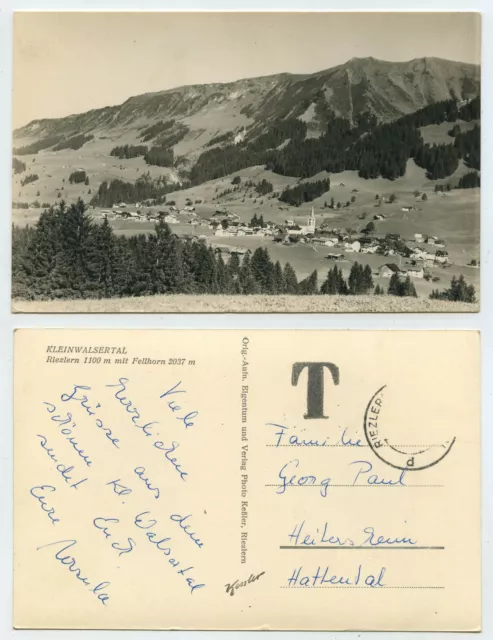 KLEINWALSERTAL
Riezlern 1100 m mit Fellhorn 2037 m
Viele
herzlichen
Grüsse aus dem
schönen Kl. Walsertal
sendet Euch
Eure Ursula
Orig.-Aufn. Eigentum und Verlag Photo Keßler, Riezlern
Kessler
T
RIEZLER
Familie
Georg Paul
Hattental